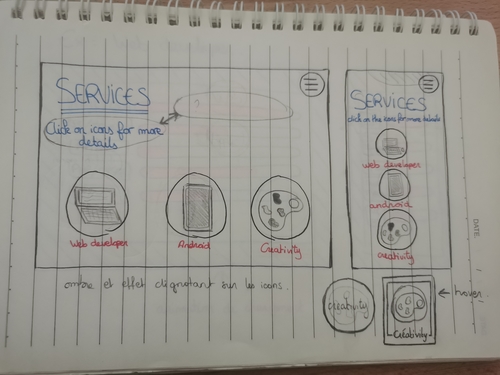 SERVICES
?
Click on icons for more
details
Web developer
Android
Creativity
SERVICES
click on the icons for more details
web developer
android
creativity
ombre et effet clignotant sur les icons.
creativity
creativity
hover
DATE